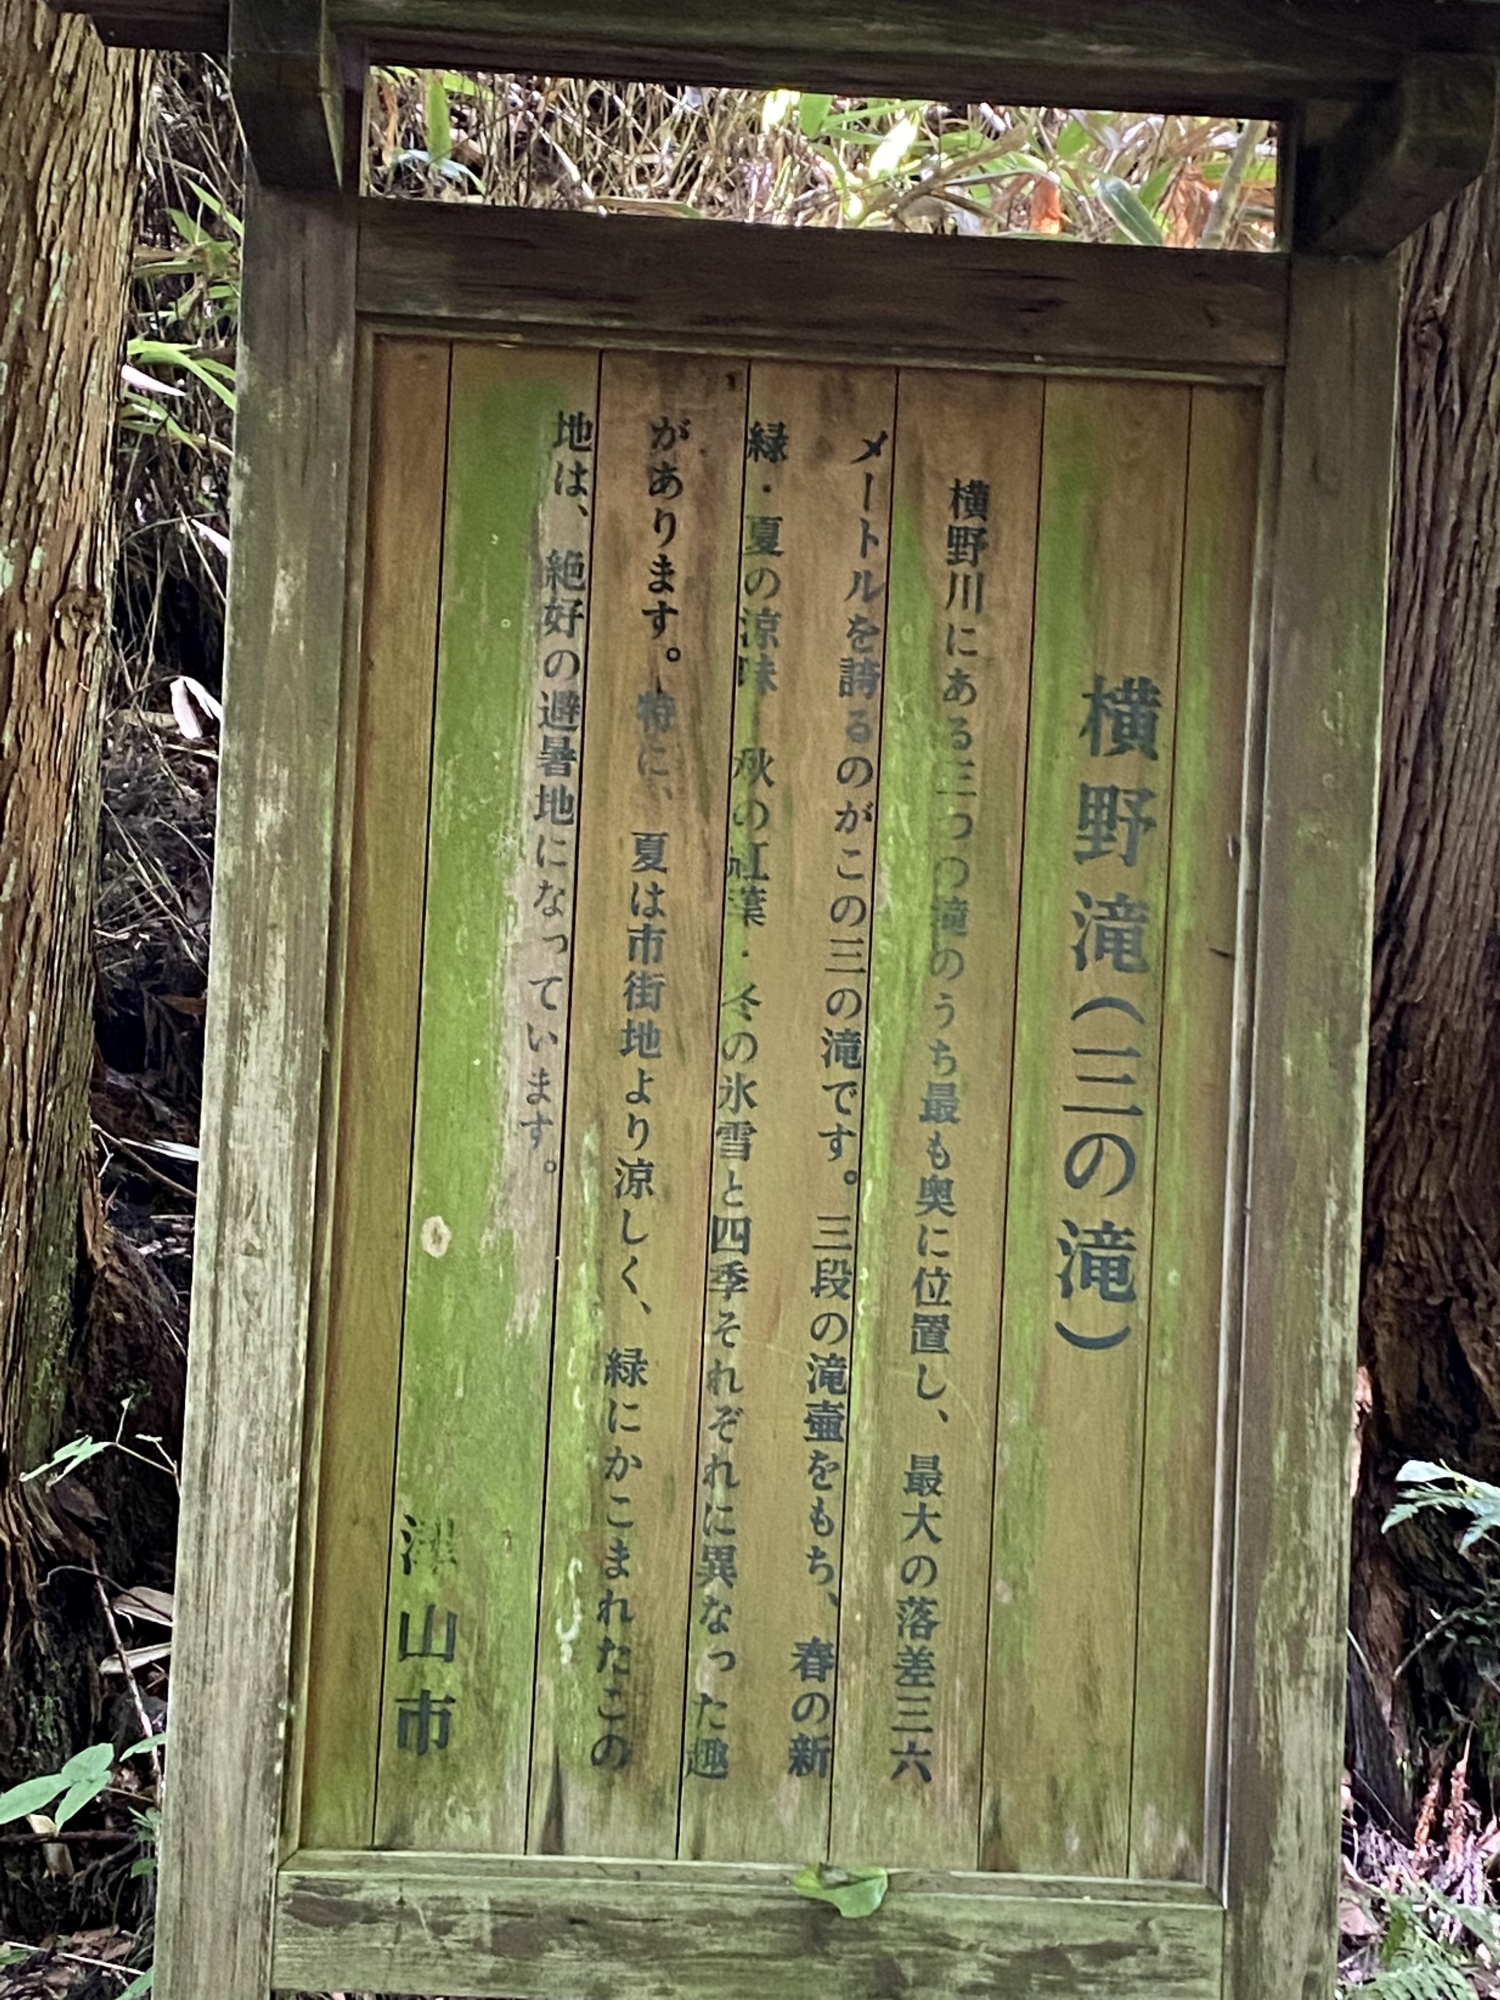 横野滝(三の滝)
横野川にある三つの滝のうち最も奥に位置し、最大の落差三六
メートルを誇るのがこの三の滝です。三段の滝壷をもち、春の新
緑・夏の涼味・秋の紅葉・冬の氷雪と四季それぞれに異なった趣
があります。特に、夏は市街地より涼しく、緑にかこまれたこの
地は、絶好の避暑地になっています。
津山市